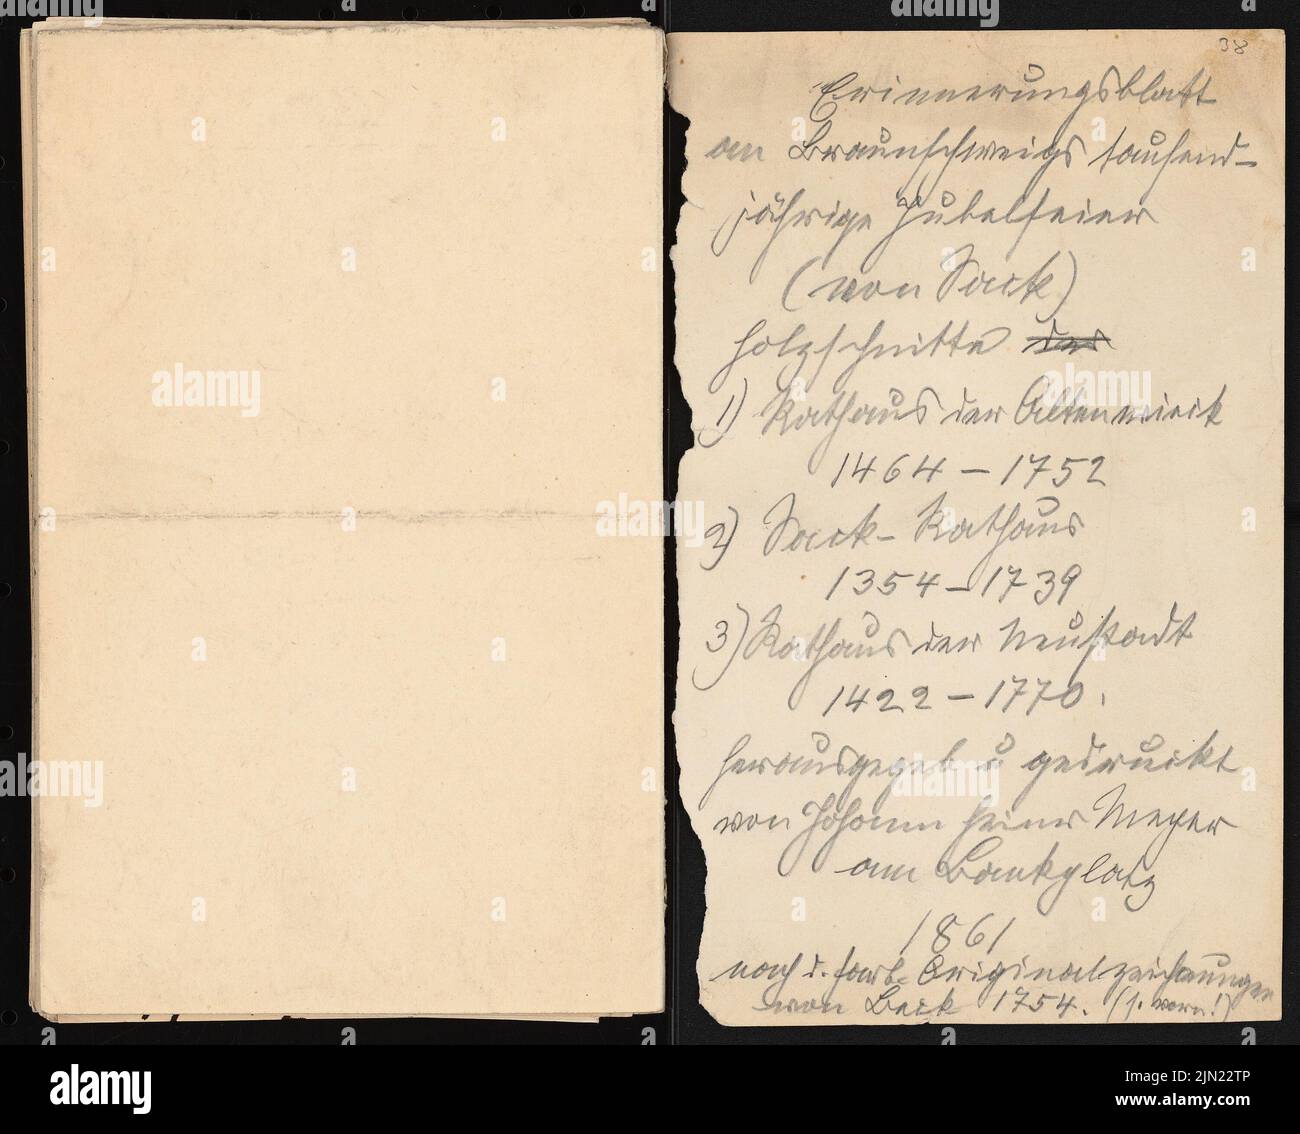 38
Erinnerungsblatt
an Braunschweigs tausend-
jährige Jubelfeier
(von Sack)
Holzschnitte der
1) Rathaus der Altenwieck
1464 – 1752
2) Sack-Rathaus
1354 – 1739
3) Rathaus der Neustadt
1422 – 1770.
herausgegeb u gedruckt
von Johann Heinr Meyer
am Bankplatz
1861
nach d. farb. Originalzeichnungen
von Beck 1754. (s. vorn!)
alamy
Image ID: 2JN22TP
www.alamy.com